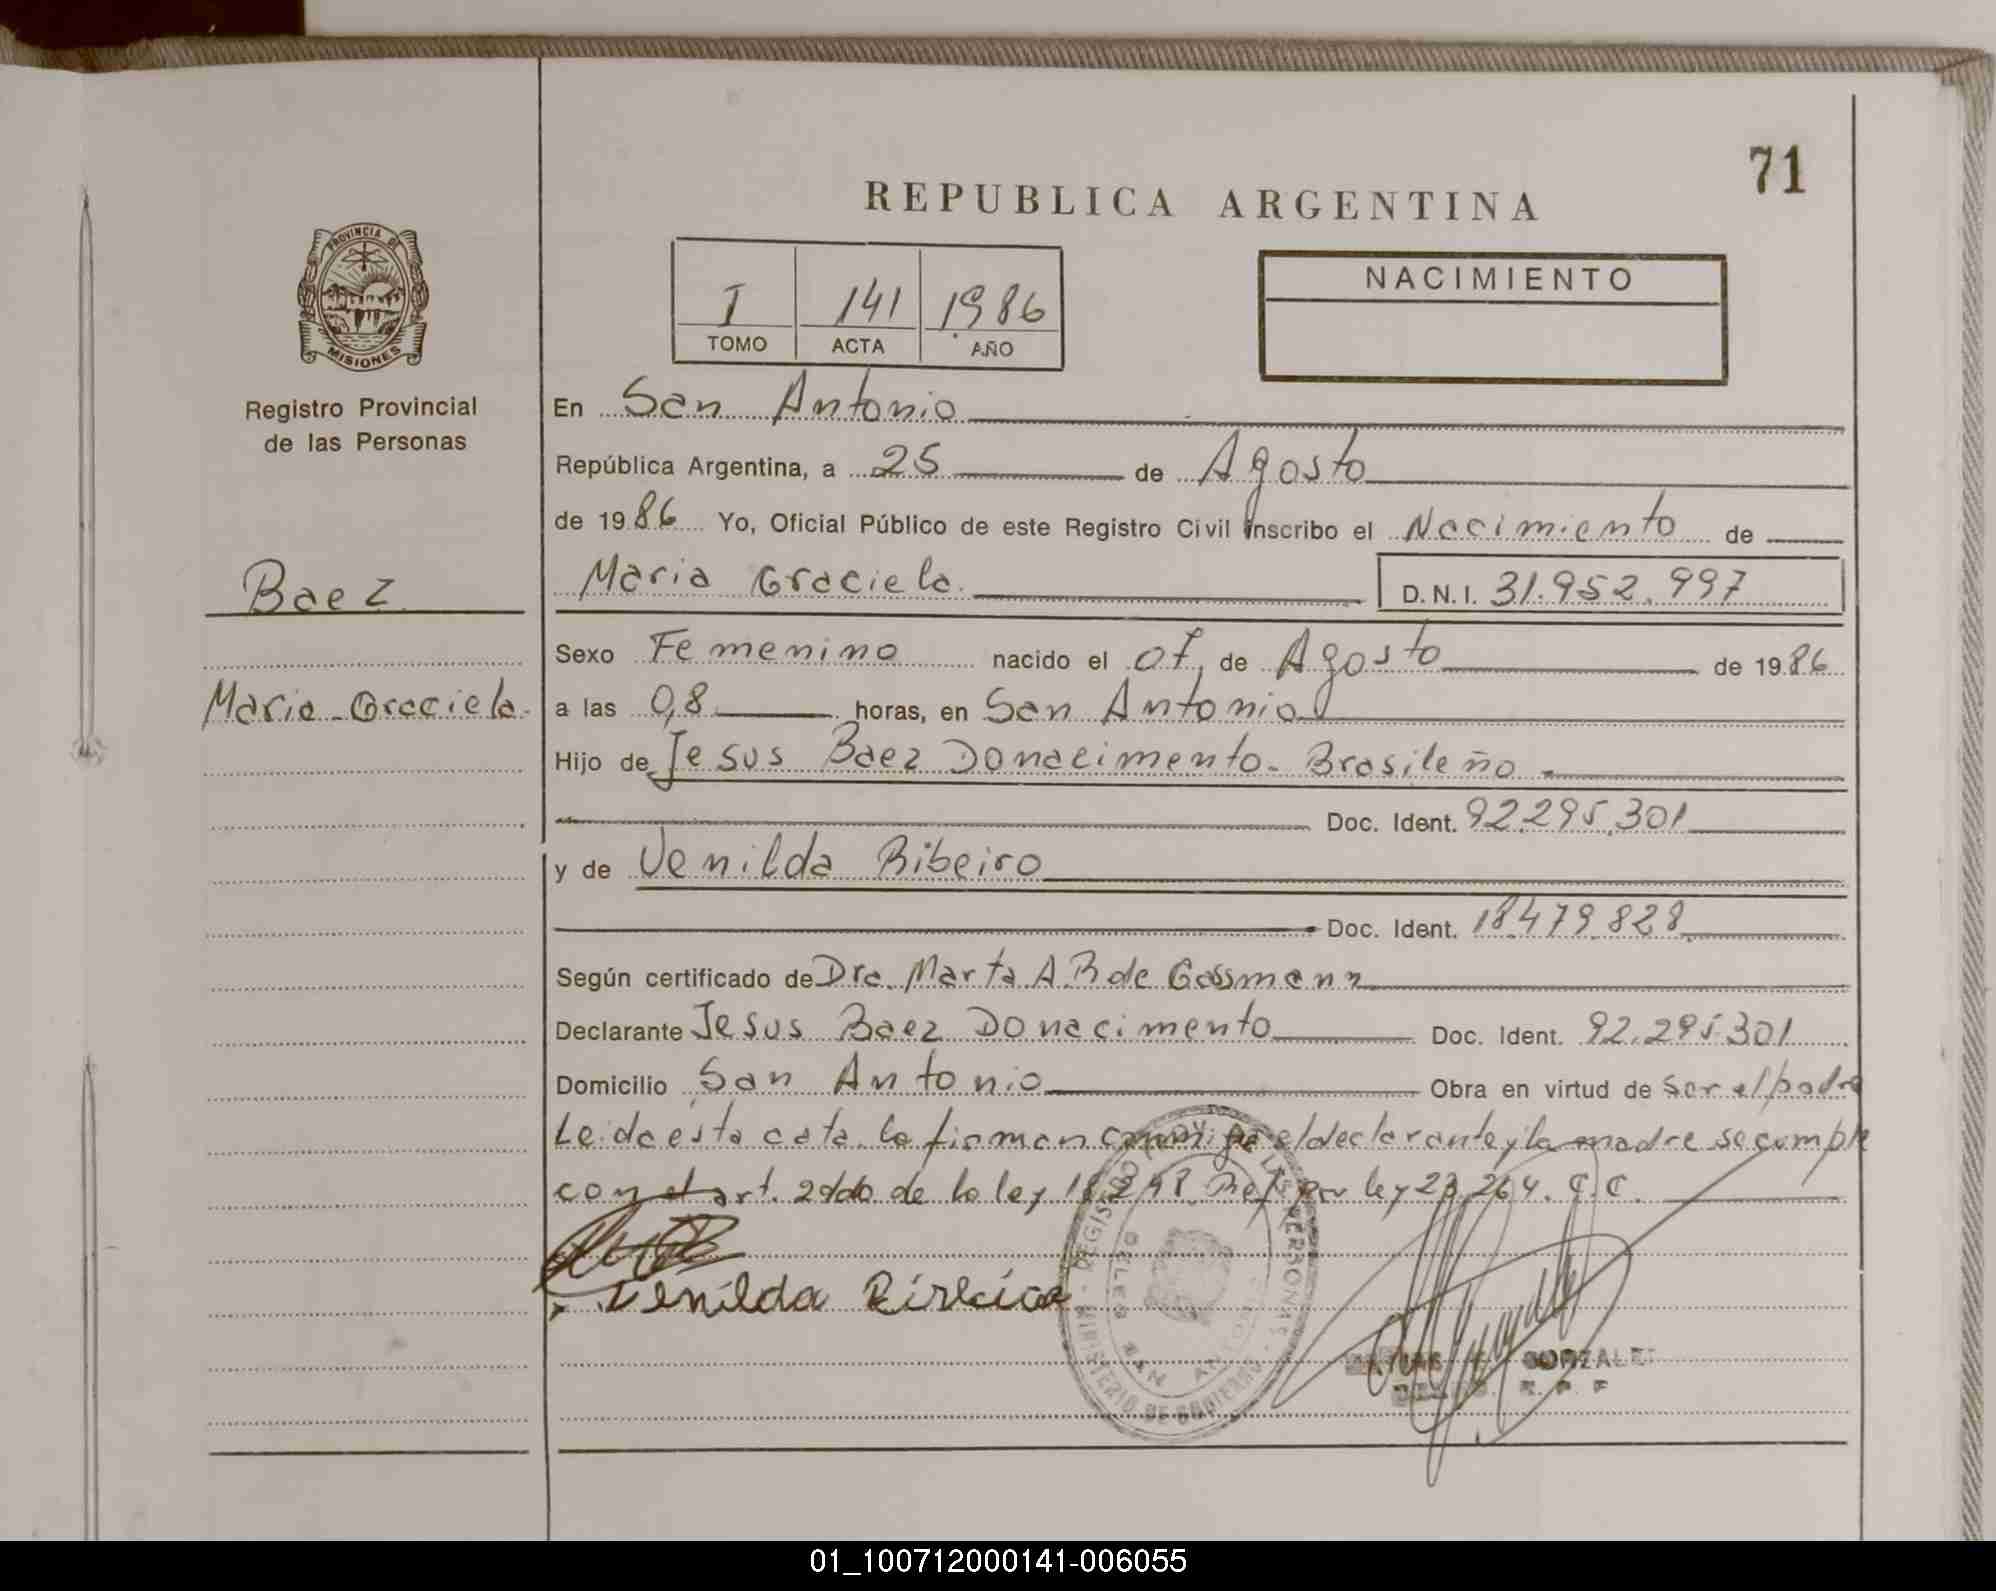 71
REPUBLICA ARGENTINA
PROVINCIA DE
MISIONES
Registro Provincial
de las Personas
I 141 1986
TOMO ACTA AÑO
NACIMIENTO
En San Antonio
República Argentina, a 25 de Agosto
de 1986 Yo, Oficial Público de este Registro Civil inscribo el Nacimiento de
Baez
Maria Graciela. D.N.I. 31.952.997
Sexo Femenino nacido el 07 de Agosto de 1986
Maria Graciela.
a las 0,8 horas, en San Antonio
Hijo de Jesus Baez Donacimento - Brasileño
Doc. Ident. 92.295.301
y de Venilda Ribeiro
Doc. Ident. 18.479.828
Según certificado de Dra. Marta A.R de Gassmann
Declarante Jesus Baez Donacimento Doc. Ident. 92.295.301
Domicilio San Antonio Obra en virtud de ser el padre
Leida esta cata la firman conmigo el declarante y la madre se cumple
con el art. 2do de la ley 18.248 por ley 23.264. C.C.
Venilda
REGISTRO DE LAS PERSONAS
MINISTERIO DE GOBIERNO
SAN ANTONIO
GONZALEZ
01_100712000141-006055